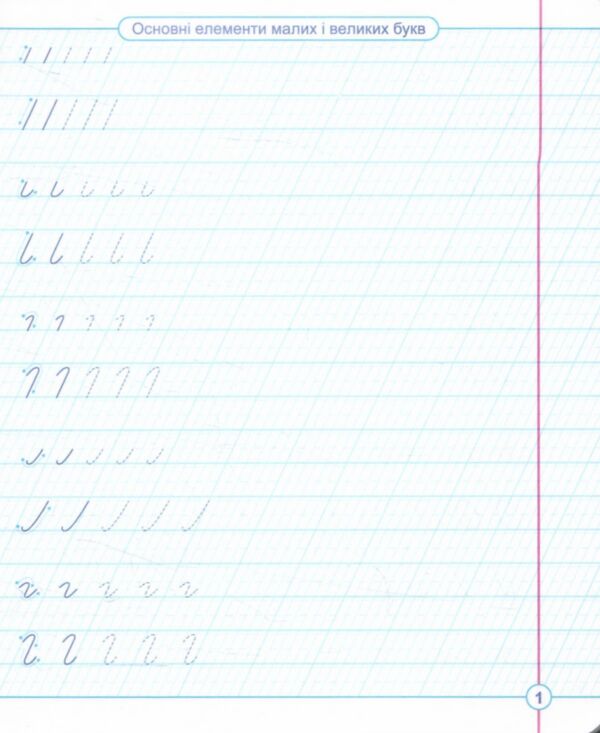 Основні елементи малих і великих букв
1